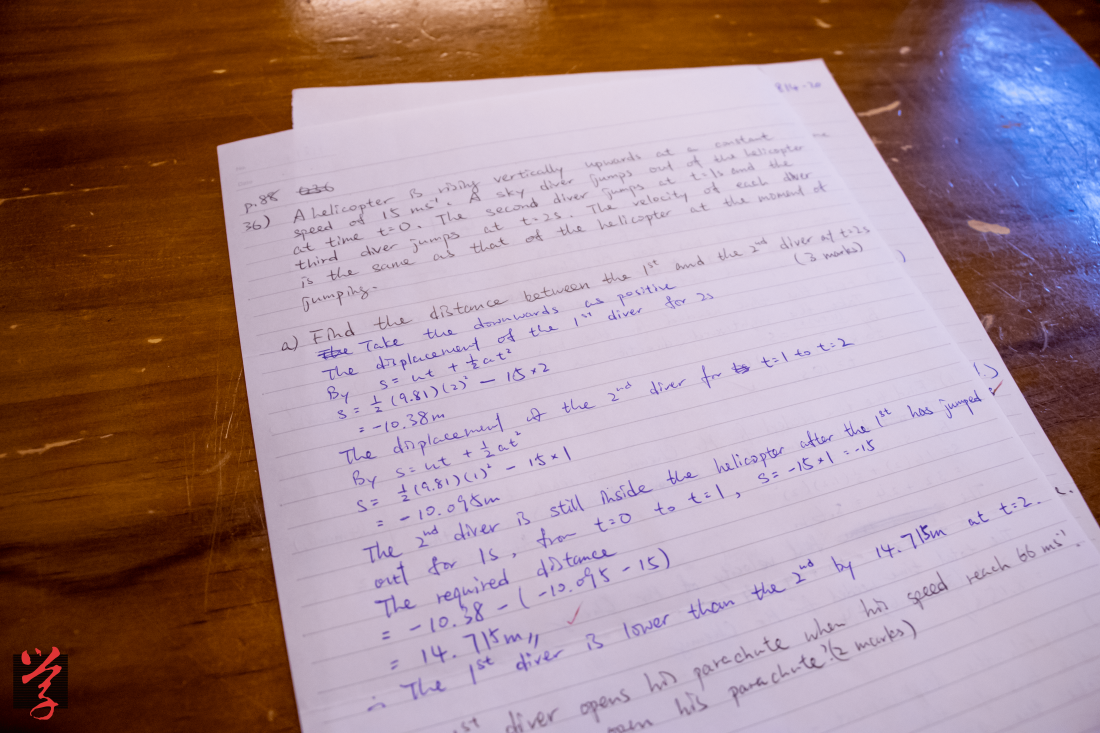 p.88
36) A helicopter is rising vertically upwards at a constant
speed of 15 ms⁻¹. A sky diver jumps out of the helicopter
at time t=0. The second diver jumps at t=1s and the
third diver jumps at t=2s. The velocity of each diver
is the same as that of the helicopter at the moment of
jumping.
a) Find the distance between the 1st and the 2nd diver at t=2s
(3 marks)
The Take the downwards as positive
The displacement of the 1st diver for 2s
By s = ut + ½at²
s = ½(9.81)(2)² - 15×2
= -10.38m
The displacement of the 2nd diver for t=1 to t=2
By s = ut + ½at²
s = ½(9.81)(1)² - 15×1
= -10.095m
The 2nd diver is still inside the helicopter after the 1st has jumped
out for 1s, from t=0 to t=1, s = -15×1 = -15
The required distance
= -10.38 - (-10.095 - 15)
= 14.715m
∴ The 1st diver is lower than the 2nd by 14.715m at t=2.
st diver opens his parachute when his speed reach 66 ms⁻¹.
his parachute? (2 marks)
学